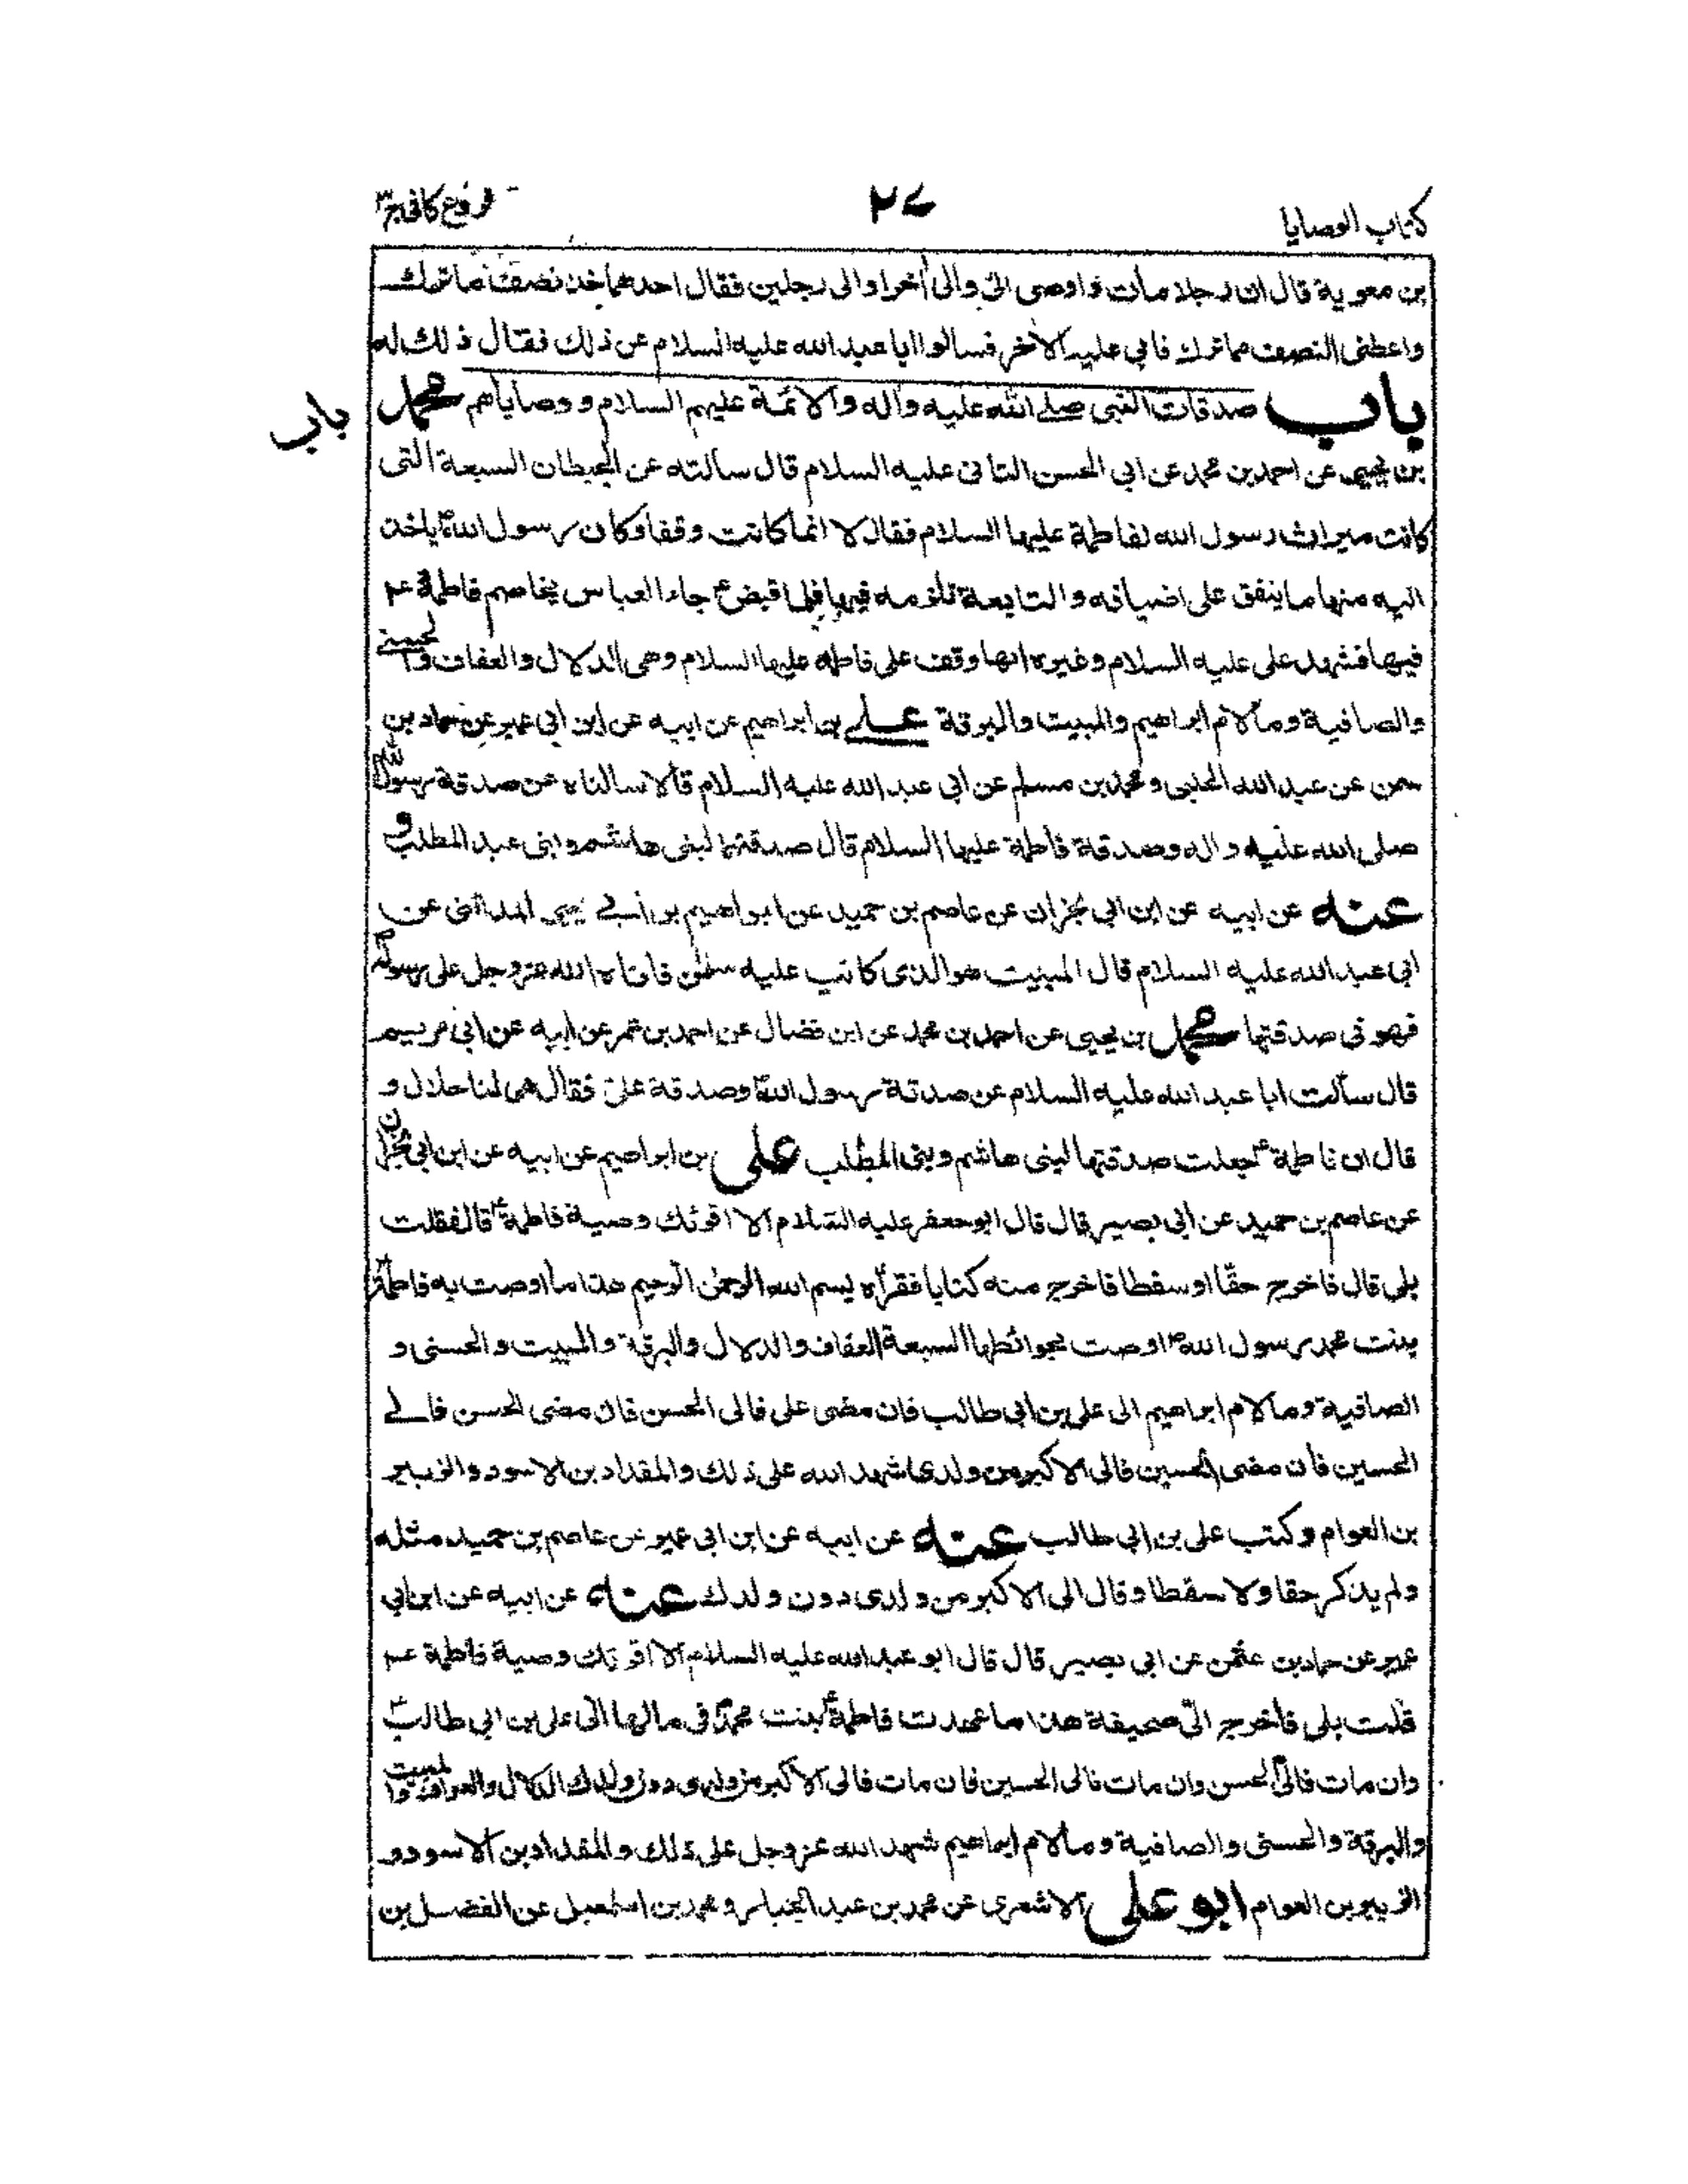 كتاب الوصايا
٢٧
فروع كافى ج٣
بن معوية قال ان رجلا مات واوصى الى والى اخر او الى رجلين فقال احدهما خذ نصف ما ترك
واعطنى النصف مما ترك فابى عليه الاخر فسالوا ابا عبد الله عليه السلام عن ذلك فقال ذلك له
باب صدقات النبى صلى الله عليه واله والائمة عليهم السلام ووصاياهم محمد
باب
بن يحيى عن احمد بن محمد عن ابي الحسن الثانى عليه السلام قال سالته عن الحيطان السبعة التى
كانت ميراث رسول الله لفاطمة عليها السلام فقال لا انما كانت وقفا وكان رسول الله ص ياخذ
اليه منها ما ينفق على اضيافه والتابعة تلزمه فيها فلما قبض جاء العباس يخاصم فاطمة ع
فيها فشهد على عليه السلام وغيره انها وقف على فاطمة عليها السلام وهى الدلال والعفاف والحسنى
والصافية وما لام ابراهيم والمبيت والبرقة على بن ابراهيم عن ابيه عن ابن ابى عمير عن حماد بن
عثمن عن عبيد الله الحلبى ومحمد بن مسلم عن ابي عبد الله عليه السلام قالا سالناه عن صدقة رسول الله
صلى الله عليه واله وصدقة فاطمة عليها السلام قال صدقتهما لبنى هاشم وبنى عبد المطلب و
عنه عن ابيه عن ابن ابي نجران عن عاصم بن حميد عن ابراهيم بن ابي يحيى المدائنى عن
ابي عبد الله عليه السلام قال المبيت هو الذى كاتب عليه سلمن فافاءه الله عز وجل على رسوله
فهو فى صدقتها محمد بن يحيى عن احمد بن محمد عن ابن فضال عن احمد بن عمر عن ابيه عن ابى مريم
قال سالت ابا عبد الله عليه السلام عن صدقة رسول الله ص وصدقة على فقال هى لنا حلال و
قال ان فاطمة ع جعلت صدقتها لبنى هاشم وبنى المطلب على بن ابراهيم عن ابيه عن ابن ابي نجران
عن عاصم بن حميد عن ابي بصير قال قال ابو جعفر عليه السلام الا اقرئك وصية فاطمة ع قال فقلت
بلى قال فاخرج حقا او سفطا فاخرج منه كتابا فقراه بسم الله الرحمن الرحيم هذا ما اوصت به فاطمة
بنت محمد رسول الله ص اوصت بحوائطها السبعة العفاف والدلال والبرقة والمبيت والحسنى و
الصافية وما لام ابراهيم الى على بن ابي طالب فان مضى على فالى الحسن فان مضى الحسن فالى
الحسين فان مضى الحسين فالى الاكبر من ولدى شهد الله على ذلك والمقداد بن الاسود والزبير
بن العوام وكتب على بن ابي طالب عنه عن ابيه عن ابن ابى عمير عن عاصم بن حميد مثله
ولم يذكر حقا ولا سفطا وقال الى الاكبر من ولدى دون ولدك عنه عن ابيه عن ابن ابي
عمير عن حماد بن عثمن عن ابى بصير قال قال ابو عبد الله عليه السلام الا اقرئك وصية فاطمة ع
قلت بلى فاخرج الى صحيفة هذا ما عهدت فاطمة ع بنت محمد ص فى مالها الى على بن ابي طالب ع
وان مات فالى الحسن وان مات فالى الحسين فان مات فالى الاكبر من ولدى دون ولدك الدلال والعواف والمبيت
والبرقة والحسنى والصافية وما لام ابراهيم شهد الله عز وجل على ذلك والمقداد بن الاسود و
الزبير بن العوام ابو على الاشعرى عن محمد بن عبد الجبار ومحمد بن اسمعيل عن الفضل بن